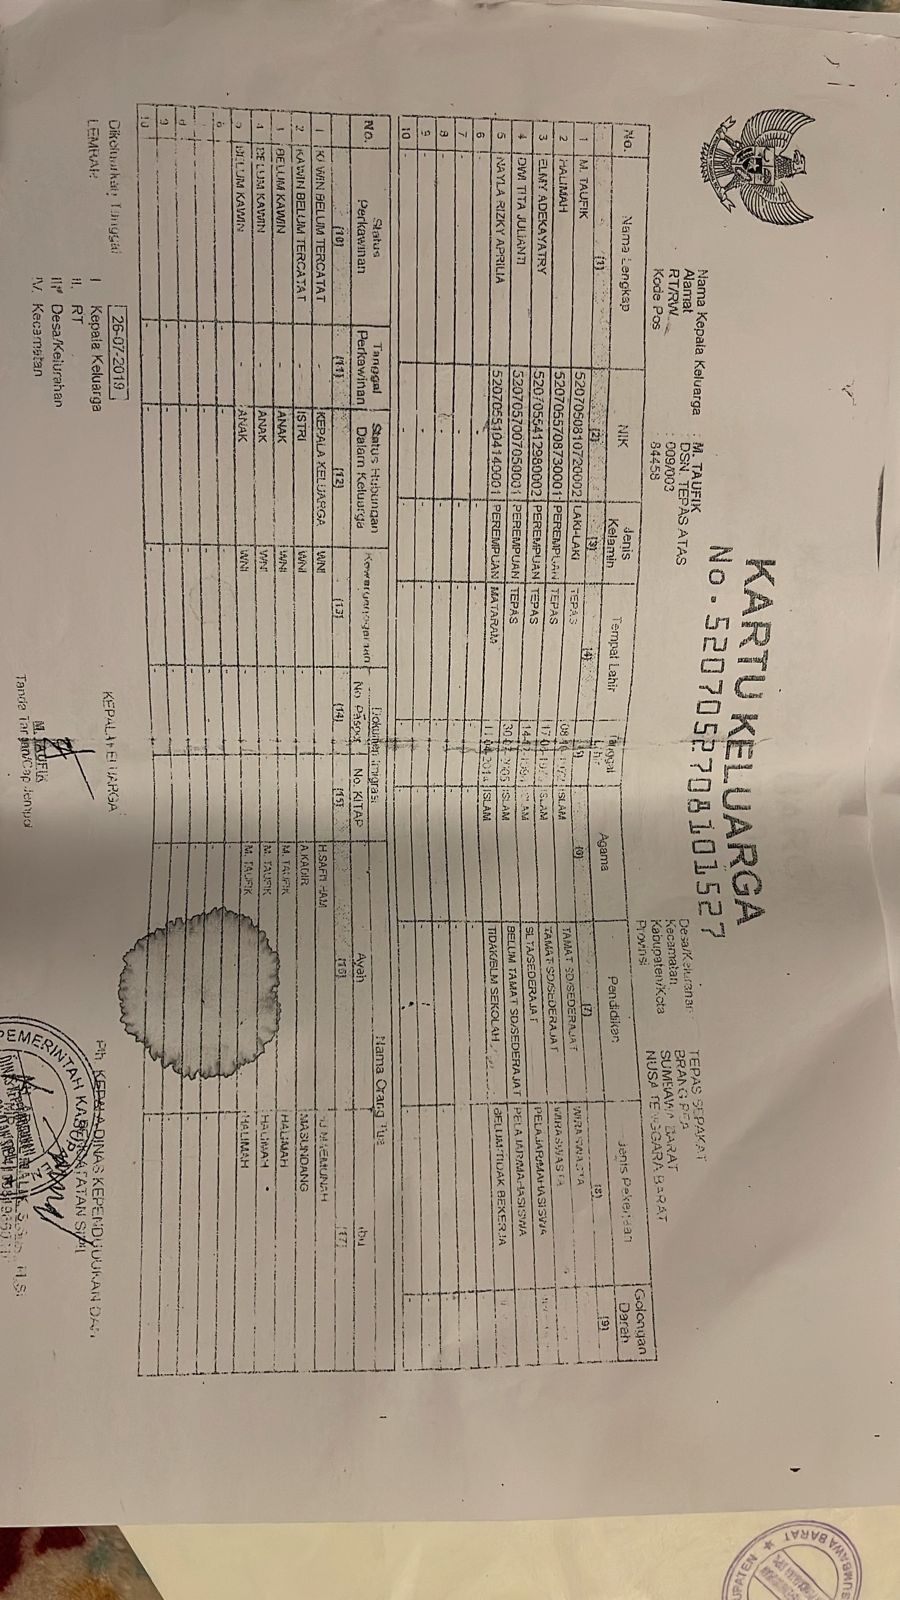 KARTU KELUARGA
No. 5207052708101527
Nama Kepala Keluarga : M. TAUFIK
Alamat : DSN. TEPAS ATAS
RT/RW : 009/003
Kode Pos : 84458
Desa/Kelurahan : TEPAS SEPAKAT
Kecamatan : BRANG REA
Kabupaten/Kota : SUMBAWA BARAT
Provinsi : NUSA TENGGARA BARAT
No. Nama Lengkap NIK Jenis Kelamin Tempat Lahir Tanggal Lahir Agama Pendidikan Jenis Pekerjaan Golongan Darah
(1) (2) (3) (4) (5) (6) (7) (8) (9)
1 M. TAUFIK 5207050810720002 LAKI-LAKI TEPAS ISLAM TAMAT SD/SEDERAJAT WIRASWASTA
2 HALIMAH 5207055708730001 PEREMPUAN TEPAS ISLAM TAMAT SD/SEDERAJAT WIRASWASTA
3 ELMY ADEKAYATRY 5207055412980002 PEREMPUAN TEPAS ISLAM SLTA/SEDERAJAT PELAJAR/MAHASISWA
4 DWI TITA JULIANTI 5207057007050001 PEREMPUAN TEPAS ISLAM BELUM TAMAT SD/SEDERAJAT PELAJAR/MAHASISWA
5 NAYLA RIZKY APRILIA 5207055104140001 PEREMPUAN MATARAM ISLAM TIDAK/BLM SEKOLAH BELUM/TIDAK BEKERJA
6 -
7 -
8 -
9 -
10 -
No. Status Perkawinan Tanggal Perkawinan Status Hubungan Dalam Keluarga Kewarganegaraan Dokumen Imigrasi Nama Orang Tua
No. Paspor No. KITAP Ayah Ibu
(10) (11) (12) (13) (14) (15) (16) (17)
1 KAWIN BELUM TERCATAT - KEPALA KELUARGA WNI
2 KAWIN BELUM TERCATAT - ISTRI WNI A.KADIR MASUNDANG
3 BELUM KAWIN - ANAK WNI M. TAUFIK HALIMAH
4 BELUM KAWIN - ANAK WNI M. TAUFIK HALIMAH
5 BELUM KAWIN - ANAK WNI M. TAUFIK HALIMAH
6 -
7 -
8 -
9 -
10 -
Dikeluarkan Tanggal 26-07-2019
LEMBAR I. Kepala Keluarga
II. RT
III. Desa/Kelurahan
IV. Kecamatan
KEPALA KELUARGA
M. TAUFIK
Tanda Tangan/Cap Jempol
Plh KEPALA DINAS KEPENDUDUKAN DAN
PENCATATAN SIPIL
PEMERINTAH KABUPATEN